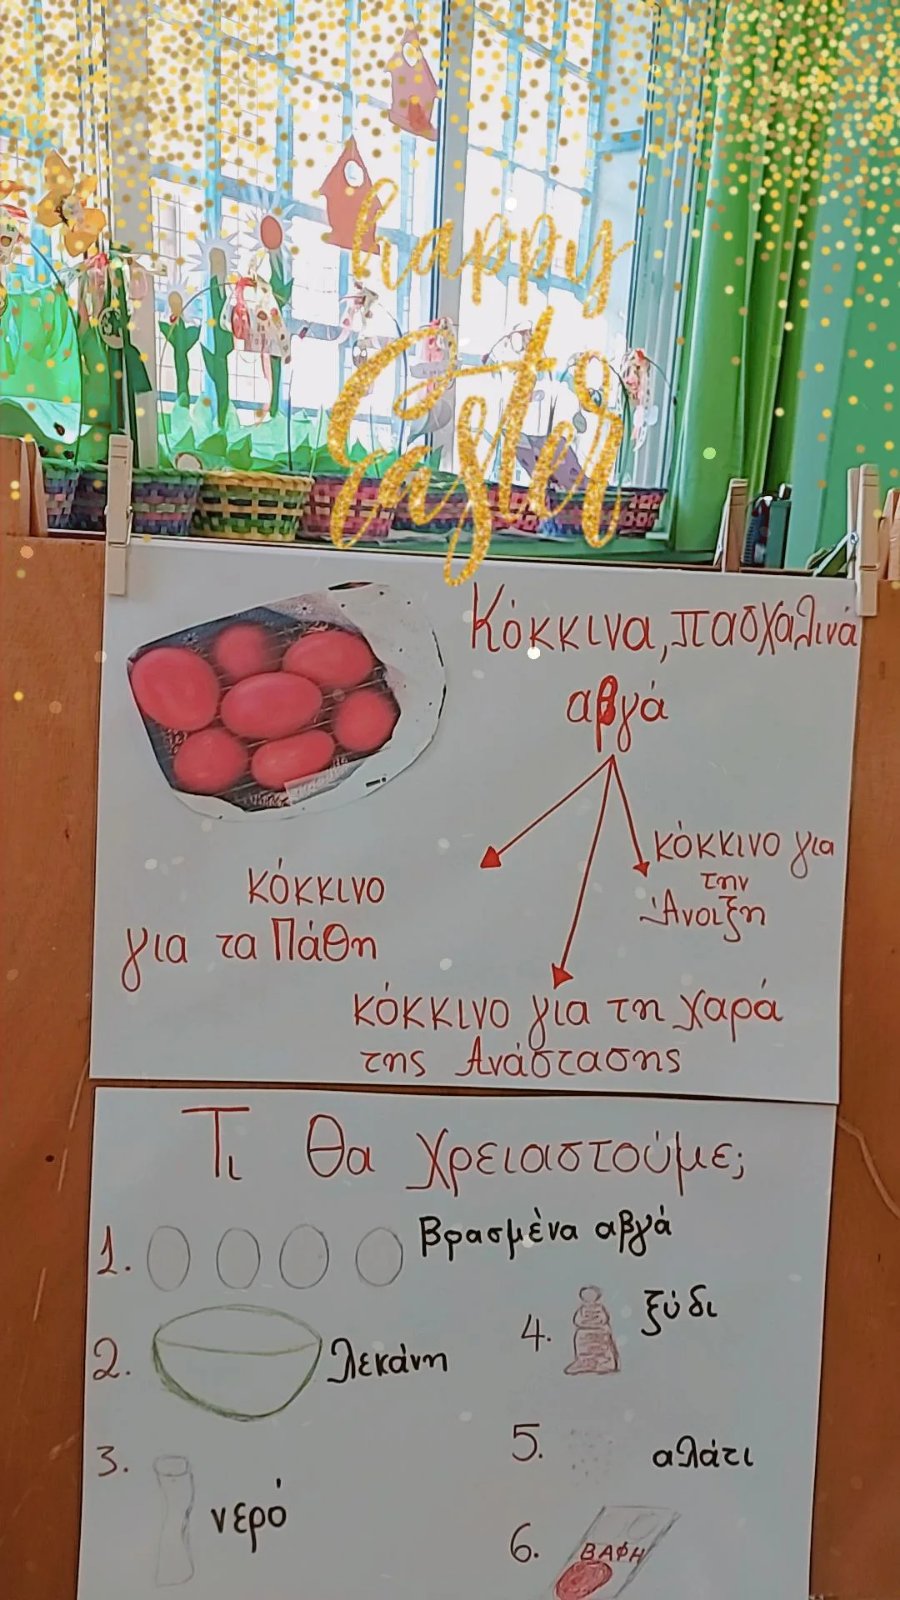 happy
Easter
Κόκκινα, πασχαλινά
αβγά
κόκκινο για
την
Άνοιξη
κόκκινο
για τα Πάθη
κόκκινο για τη χαρά
της Ανάστασης
Τι θα χρειαστούμε;
1. Βρασμένα αβγά
2. λεκάνη
3. νερό
4. ξύδι
5. αλάτι
6. ΒΑΦΗ